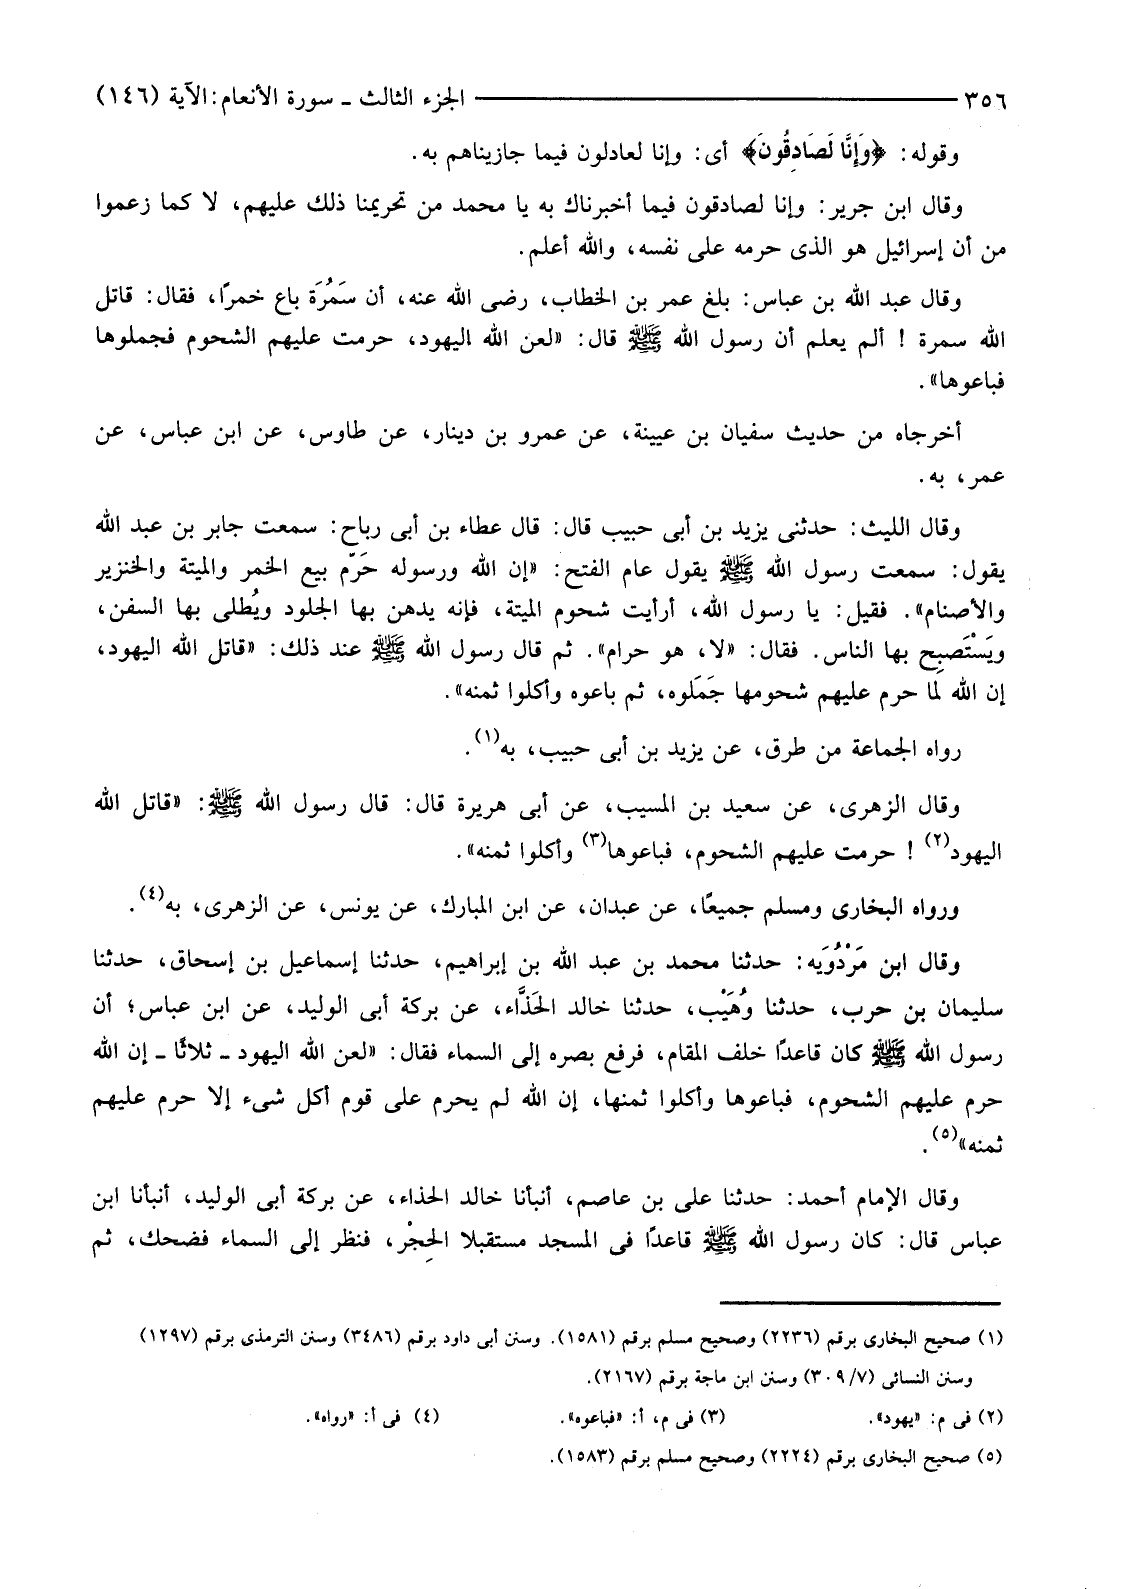 ٣٥٦ ــــــــــــــــــــ الجزء الثالث ـ سورة الأنعام: الآية (١٤٦)
وقوله: ﴿وَإِنَّا لَصَادِقُونَ﴾ أى: وإنا لعادلون فيما جازيناهم به.
وقال ابن جرير: وإنا لصادقون فيما أخبرناك به يا محمد من تحريمنا ذلك عليهم، لا كما زعموا
من أن إسرائيل هو الذى حرمه على نفسه، والله أعلم.
وقال عبد الله بن عباس: بلغ عمر بن الخطاب، رضى الله عنه، أن سَمُرَة باع خمرًا، فقال: قاتل
الله سمرة ! ألم يعلم أن رسول الله ﷺ قال: «لعن الله اليهود، حرمت عليهم الشحوم فجملوها
فباعوها».
أخرجاه من حديث سفيان بن عيينة، عن عمرو بن دينار، عن طاوس، عن ابن عباس، عن
عمر، به.
وقال الليث: حدثنى يزيد بن أبى حبيب قال: قال عطاء بن أبى رباح: سمعت جابر بن عبد الله
يقول: سمعت رسول الله ﷺ يقول عام الفتح: «إن الله ورسوله حَرّم بيع الخمر والميتة والخنزير
والأصنام». فقيل: يا رسول الله، أرأيت شحوم الميتة، فإنه يدهن بها الجلود ويُطلى بها السفن،
ويَسْتَصبِح بها الناس. فقال: «لا، هو حرام». ثم قال رسول الله ﷺ عند ذلك: «قاتل الله اليهود،
إن الله لما حرم عليهم شحومها جَمَلوه، ثم باعوه وأكلوا ثمنه».
رواه الجماعة من طرق، عن يزيد بن أبى حبيب، به(١).
وقال الزهرى، عن سعيد بن المسيب، عن أبى هريرة قال: قال رسول الله ﷺ: «قاتل الله
اليهود(٢) ! حرمت عليهم الشحوم، فباعوها(٣) وأكلوا ثمنه».
ورواه البخارى ومسلم جميعًا، عن عبدان، عن ابن المبارك، عن يونس، عن الزهرى، به(٤).
وقال ابن مَرْدُوَيه: حدثنا محمد بن عبد الله بن إبراهيم، حدثنا إسماعيل بن إسحاق، حدثنا
سليمان بن حرب، حدثنا وُهَيْب، حدثنا خالد الحَذَّاء، عن بركة أبى الوليد، عن ابن عباس؛ أن
رسول الله ﷺ كان قاعدًا خلف المقام، فرفع بصره إلى السماء فقال: «لعن الله اليهود ـ ثلاثًا ـ إن الله
حرم عليهم الشحوم، فباعوها وأكلوا ثمنها، إن الله لم يحرم على قوم أكل شىء إلا حرم عليهم
ثمنه»(٥).
وقال الإمام أحمد: حدثنا على بن عاصم، أنبأنا خالد الحذاء، عن بركة أبى الوليد، أنبأنا ابن
عباس قال: كان رسول الله ﷺ قاعدًا فى المسجد مستقبلا الحِجْر، فنظر إلى السماء فضحك، ثم
(١) صحيح البخارى برقم (٢٢٣٦) وصحيح مسلم برقم (١٥٨١). وسنن أبى داود برقم (٣٤٨٦) وسنن الترمذى برقم (١٢٩٧)
وسنن النسائى (٧/ ٣٠٩) وسنن ابن ماجة برقم (٢١٦٧).
(٢) فى م: «يهود». (٣) فى م، أ: «فباعوه». (٤) فى أ: «رواه».
(٥) صحيح البخارى برقم (٢٢٢٤) وصحيح مسلم برقم (١٥٨٣).